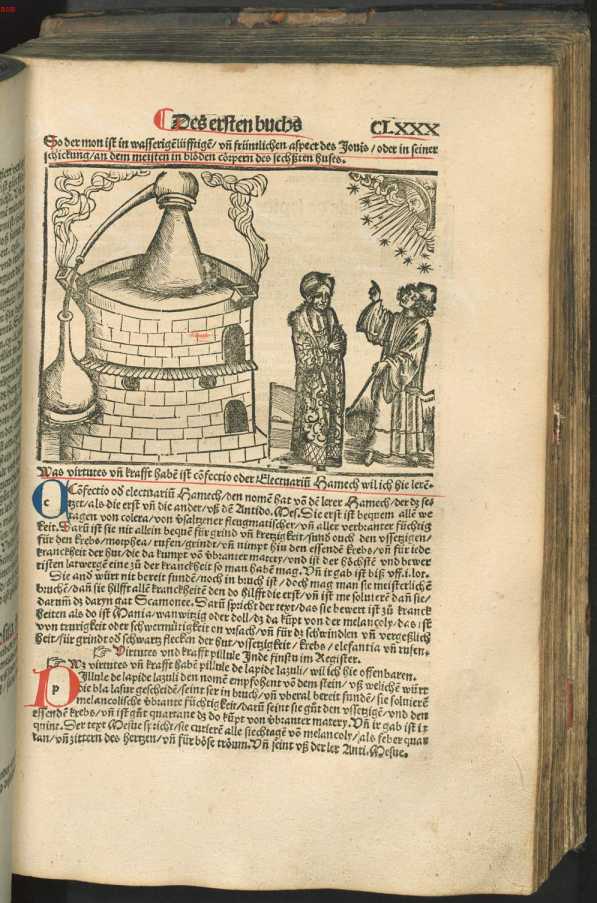 Des ersten buchs CLXXX
So der mon ist in wasserigē lüfftigē / vñ früntlichen aspect des Jouis / oder in seiner
schickung / an dem meisten in bisden cörpern des sechßten huses.
Was virtutes vñ krafft habē ist cōfectio oder Electuariū Hamech wil ich hie lerē
Cōfectio od electuariū Hamech / den nomē hat vō dē lerer Hamech / der dz ses
tzet / als die erst vñ die ander / vß dē Antido. Mes. Die erst ist beqrem allē we
tragen von colera / von gsaltzner fleugmatischer / vñ aller verbranter füchtig
keit. Darū ist sie nit allein bequē für grind vñ kretzigkeit / sund ouch den vssetzigen /
für den krebs / morphea / rufen / grindt / vñ nimpt hin den essende krebs / vñ für iede
kranckheit der hut / die da kumpt vō vbranter matery / vnd ist der höchstē vnd bewer
risten latwergē eine zū der kranckheit so man habē mag. Vñ ir gab ist biß vff .i. lot.
Sie and würt nit bereit fundē / noch in bruch ist / doch mag man sie meisterlichē
bruchē / dañ sie hilfft allē kranckheitē den do hilfft die erst / vñ ist me soluierē dañ sie /
darum dz daryn gat Scamonee. Darū spricht der text / das sie bewert ist zū kranck
heiten als do ist Mania / wanwitzig oder doll / dz da kūpt von der melancoly / das ist
von trurigkeit oder schwermütigkeit on vrsach / vñ für dz schwindlen vñ vergeßlich
heit / für grindt od schwartz flecken der hut / vssetzigkeit / krebs / elefantia vñ rufen.
Virtutes vnd krafft pillule Inde finstu im Register.
Wz virtutes vñ krafft habē pillule de lapide lazuli / wil ich hie offenbaren.
Pillule de lapide lazuli den nomē empfohent vō dem stein / vß welichē würt
die bla lasur gescheidē / seint ser in bruch / vñ vberal bereit fundē / sie soluierē
melancolische vbrante füchtigkeit / darū seint sie gūt den vssetzigē / vnd den
essendē krebs / vñ ist gūt quartane dz do kūpt vō vbranter matery. Vñ ir gab ist ix
quint. Der text Mesue spricht / sie curierē alle siechtagē vō melancoly / als feber quar
tan / vñ zittern des hertzen / vñ für böse tröum. Vñ seint vß der ler Anti. Mesue.